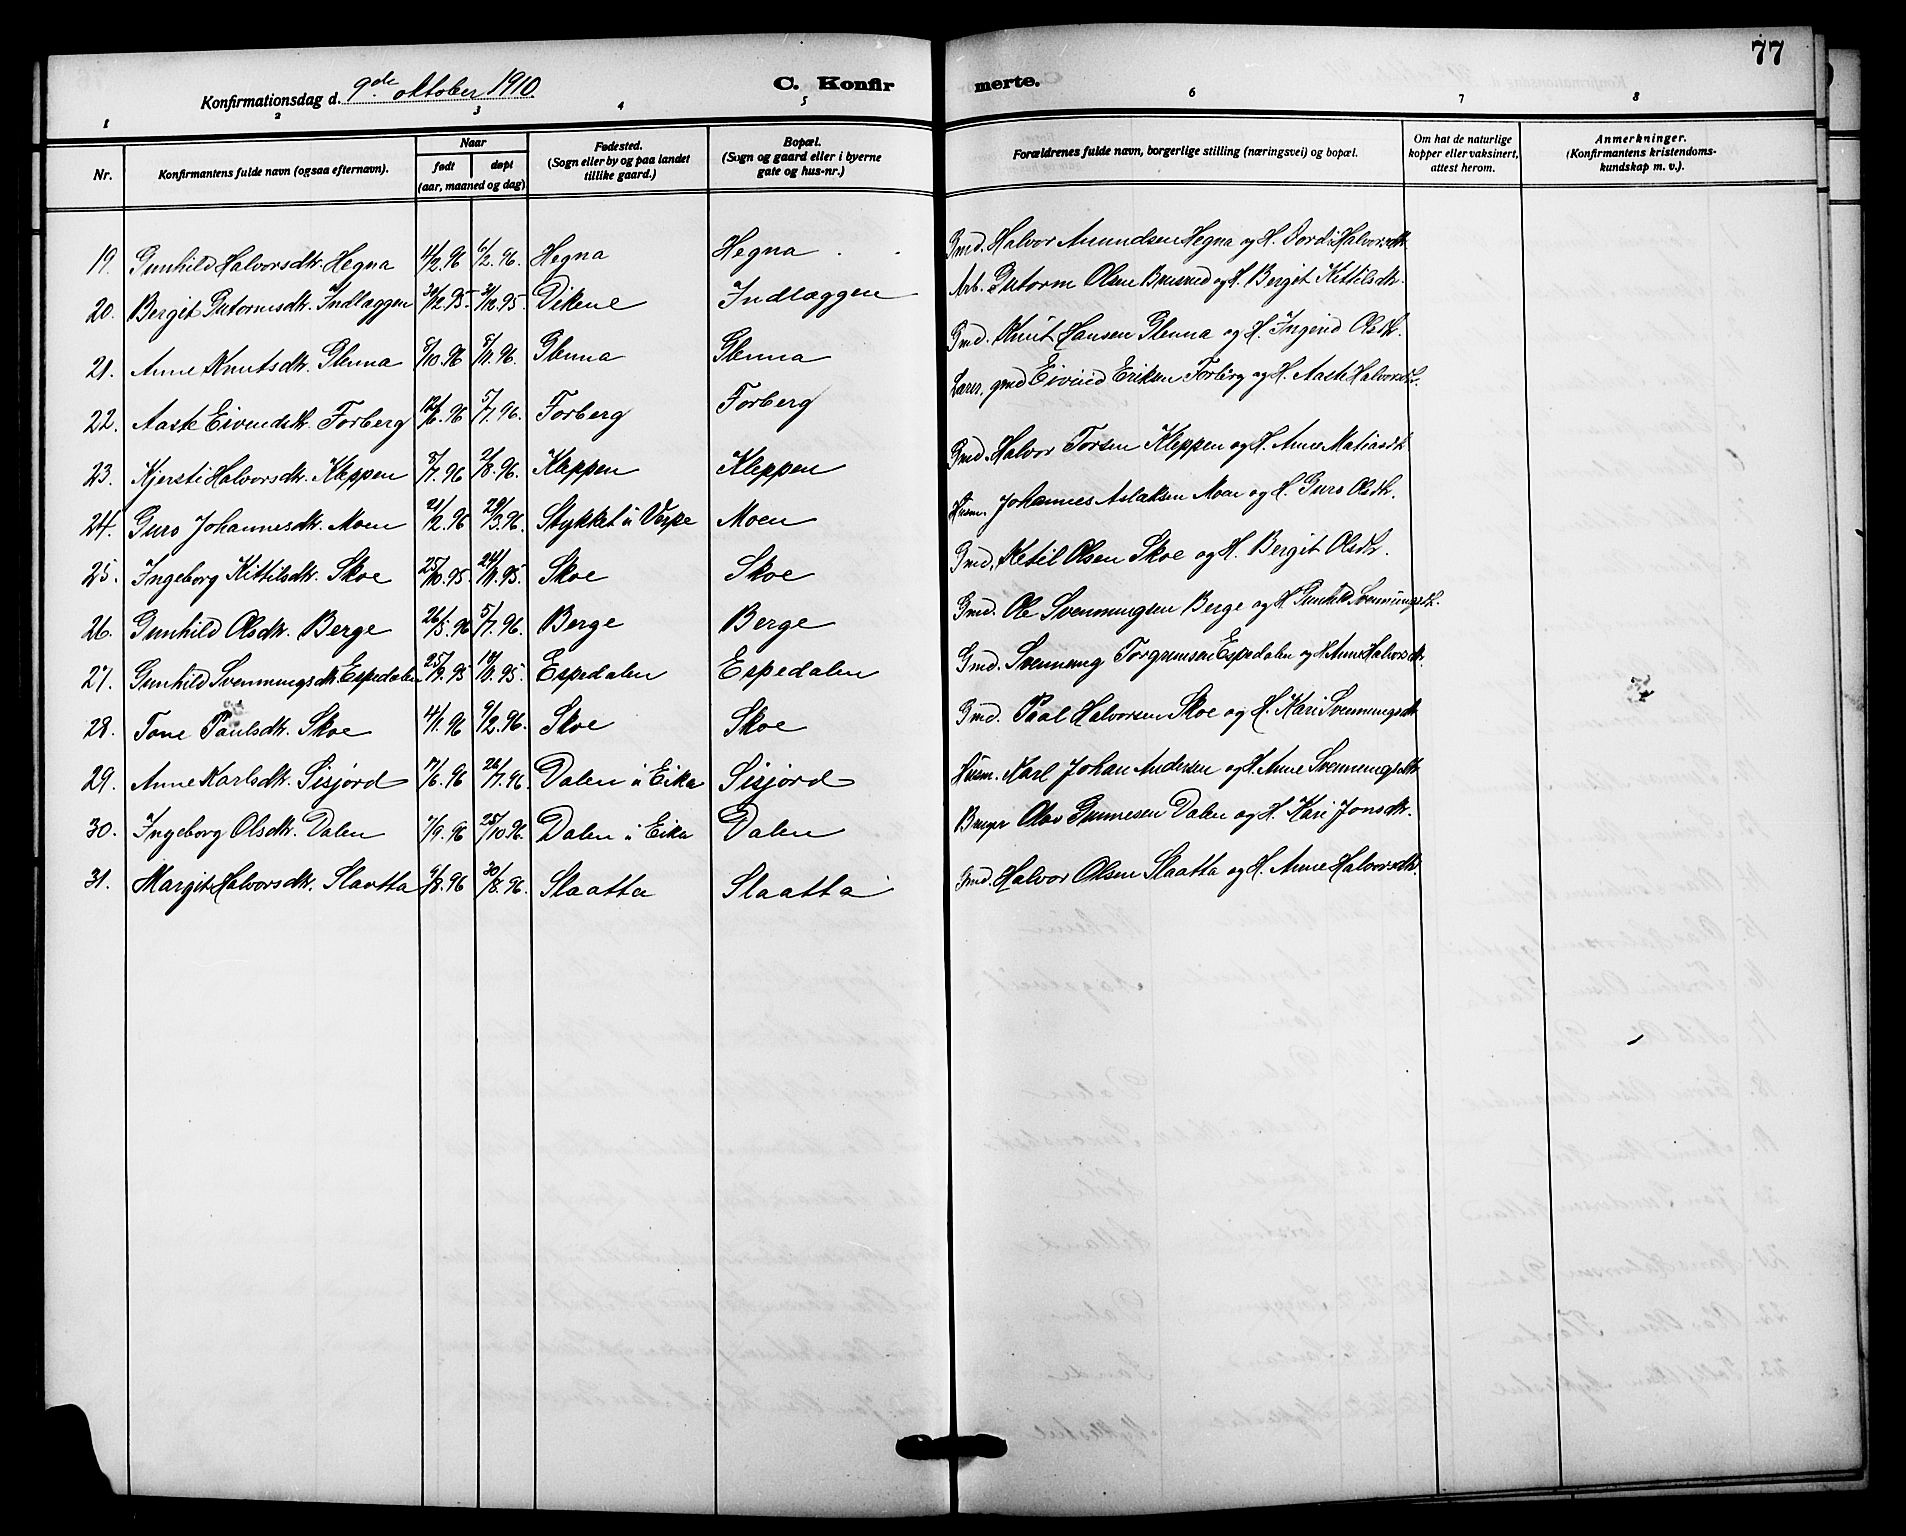 77
Konfirmationsdag d. 9de oktober 1910.
C. Konfir merte.
1 2 3 4 5 6 7 8
Nr.
Konfirmantens fulde navn (ogsaa efternavn).
Naar
født døpt
(aar, maaned og dag)
Fødested.
(Sogn eller by og paa landet
tillike gaard.)
Bopæl.
(Sogn og gaard eller i byerne
gate og hus-nr.)
Forældrenes fulde navn, borgerlige stilling (næringsvei) og bopæl.
Om hat de naturlige
kopper eller vaksinert,
attest herom.
Anmerkninger.
(Konfirmantens kristendoms-
kundskap m. v.).
19. Gunhild Halvorsdtr. Hegna 4/2.96 6/2.96. Hegna Hegna Gmd. Halvor Amundsen Hegna og H. Jordi Halvorsdtr.
20. Bergit Gutormsdtr. Indlæggen 30/12.95. 31/12.95. Dikene Indlæggen Arb. Gutorm Olsen og H. Bergit Kittilsdtr.
21. Anne Knutsdtr. Glenna 8/10.96 8/11.96. Glenna Glenna Gmd. Knut Hansen Glenna og H. Ingerid Olsdtr.
22. Aaste Eivendsdtr. Forberg 12/6.96 5/7.96. Forberg Forberg Lærer, gmd Eivind Eriksen Forberg og H. Aaste Halvorsdtr.
23. Kjersti Halvorsdtr. Kleppen 8/7.96 2/8.96. Kleppen Kleppen Gmd. Halvor Torsen Kleppen og H. Anne Matiasdtr.
24. Guro Johannesdtr. Moen 21/2.96 29/3.96. Stykket u Verpe Moen Husm. Johannes Aslaksen Moen og H. Guro Olsdtr.
25. Ingeborg Kittilsdtr. Skoe 25/10.95. 24/11.95. Skoe Skoe Gmd. Ketil Olsen Skoe og H. Bergit Olsdtr.
26. Gunhild Olsdtr. Berge 26/5.96 5/7.96. Berge Berge Gmd. Ole Svenningsen Berge og H. Gunhild Svenningsdtr.
27. Gunhild Svenningsdtr. Espedalen 25/9.95 10/11.95. Espedalen Espedalen Gmd. Svenning Torgrimsen Espedalen og H. Anne Halvorsdtr.
28. Tone Paulsdtr. Skoe 4/1.96 9/2.96. Skoe Skoe Gmd. Paal Halvorsen Skoe og H. Kari Svenningsdtr.
29. Anne Karlsdtr. Sisjord 17/6.96 26/7.96 Dalen u Eika Sisjord Husm. Karl Johan Andersen og H. Anne Svenningsdtr.
30. Ingeborg Olsdtr. Dalen 7/9.96 25/10.96. Dalen u Eika Dalen Bruger Olav Gunnesen Dalen og H. Kari Jonsdtr.
31. Margit Halvorsdtr. Slaatta 9/8.96 30/8.96. Slaatta Slaatta Gmd. Halvor Olsen Slaatta og H. Anne Halvorsdtr.